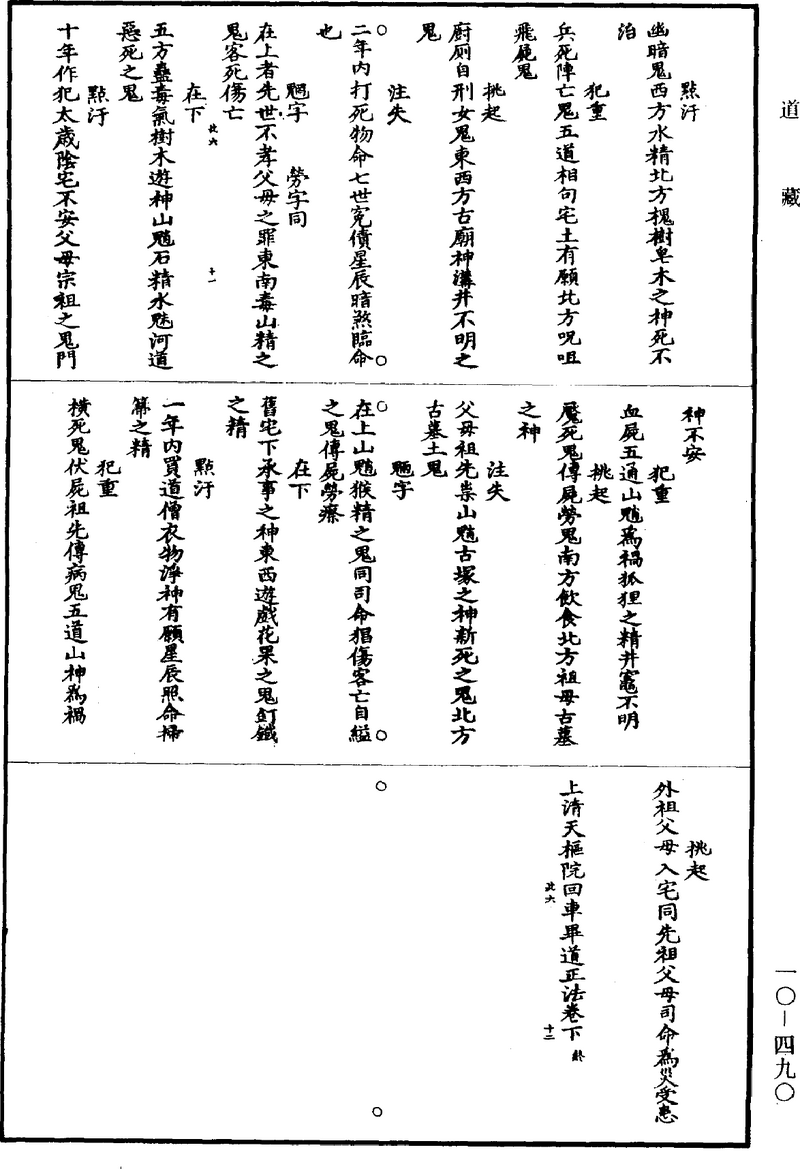 道藏
一〇—四九〇
點汙
幽暗鬼西方水精北方槐樹皂木之神死不
治
犯重
兵死陣亡鬼五道相句宅土有願北方呪咀
飛屍鬼
挑起
廚厠自刑女鬼東西方古廟神溝井不明之
鬼
注失
二年內打死物命七世寃債星辰暗煞臨命
也
魍字 勞字同
在上者先世不孝父母之罪東南毒山精之
鬼客死傷亡
在下
此六 十一
五方蠱毒氣樹木遊神山魈石精水魅河道
惡死之鬼
點汙
十年作犯太歲陰宅不安父母宗祖之鬼門
神不安
犯重
血屍五通山魈爲禍狐狸之精井竈不明
挑起
魘死鬼傳屍勞鬼南方飲食北方祖母古墓
之神
注失
父母祖先祟山魈古塚之神新死之鬼北方
古墓土鬼
魍字
在上山魈猴精之鬼同司命猖傷客亡自縊
之鬼傳屍勞瘵
在下
舊宅下承事之神東西遊戲花果之鬼釘鐵
之精
點汙
一年內買道僧衣物淨神有願星辰照命掃
箒之精
犯重
橫死鬼伏屍祖先傳病鬼五道山神爲禍
挑起
外祖父母入宅同先祖父母司命爲災受患
上清天樞院回車畢道正法卷下 終
此六 十二